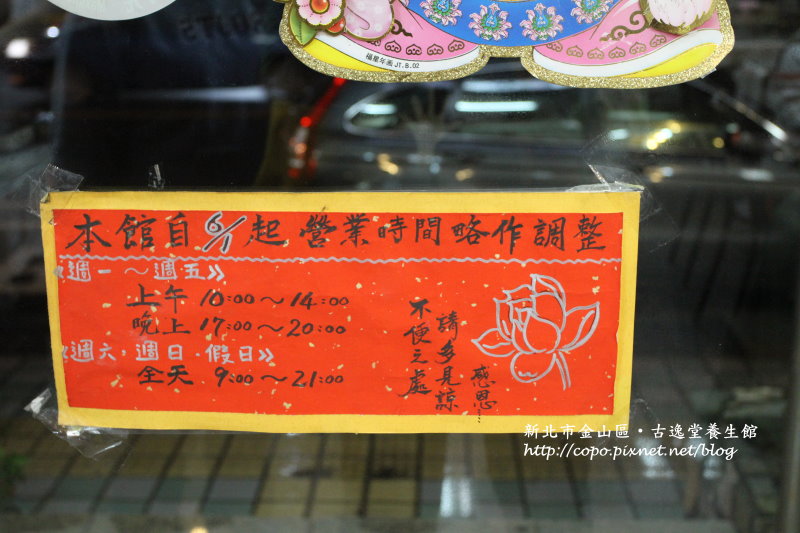 福龍年画 J1.B.02
本館自6/1起營業時間略作調整
《週一～週五》
上午 10:00～14:00
晚上 17:00～20:00
《週六．週日．假日》
全天 9:00～21:00
不便之處
請多見諒
感恩……
新北市金山區・古逸堂養生館
http://copo.pixnet.net/blog